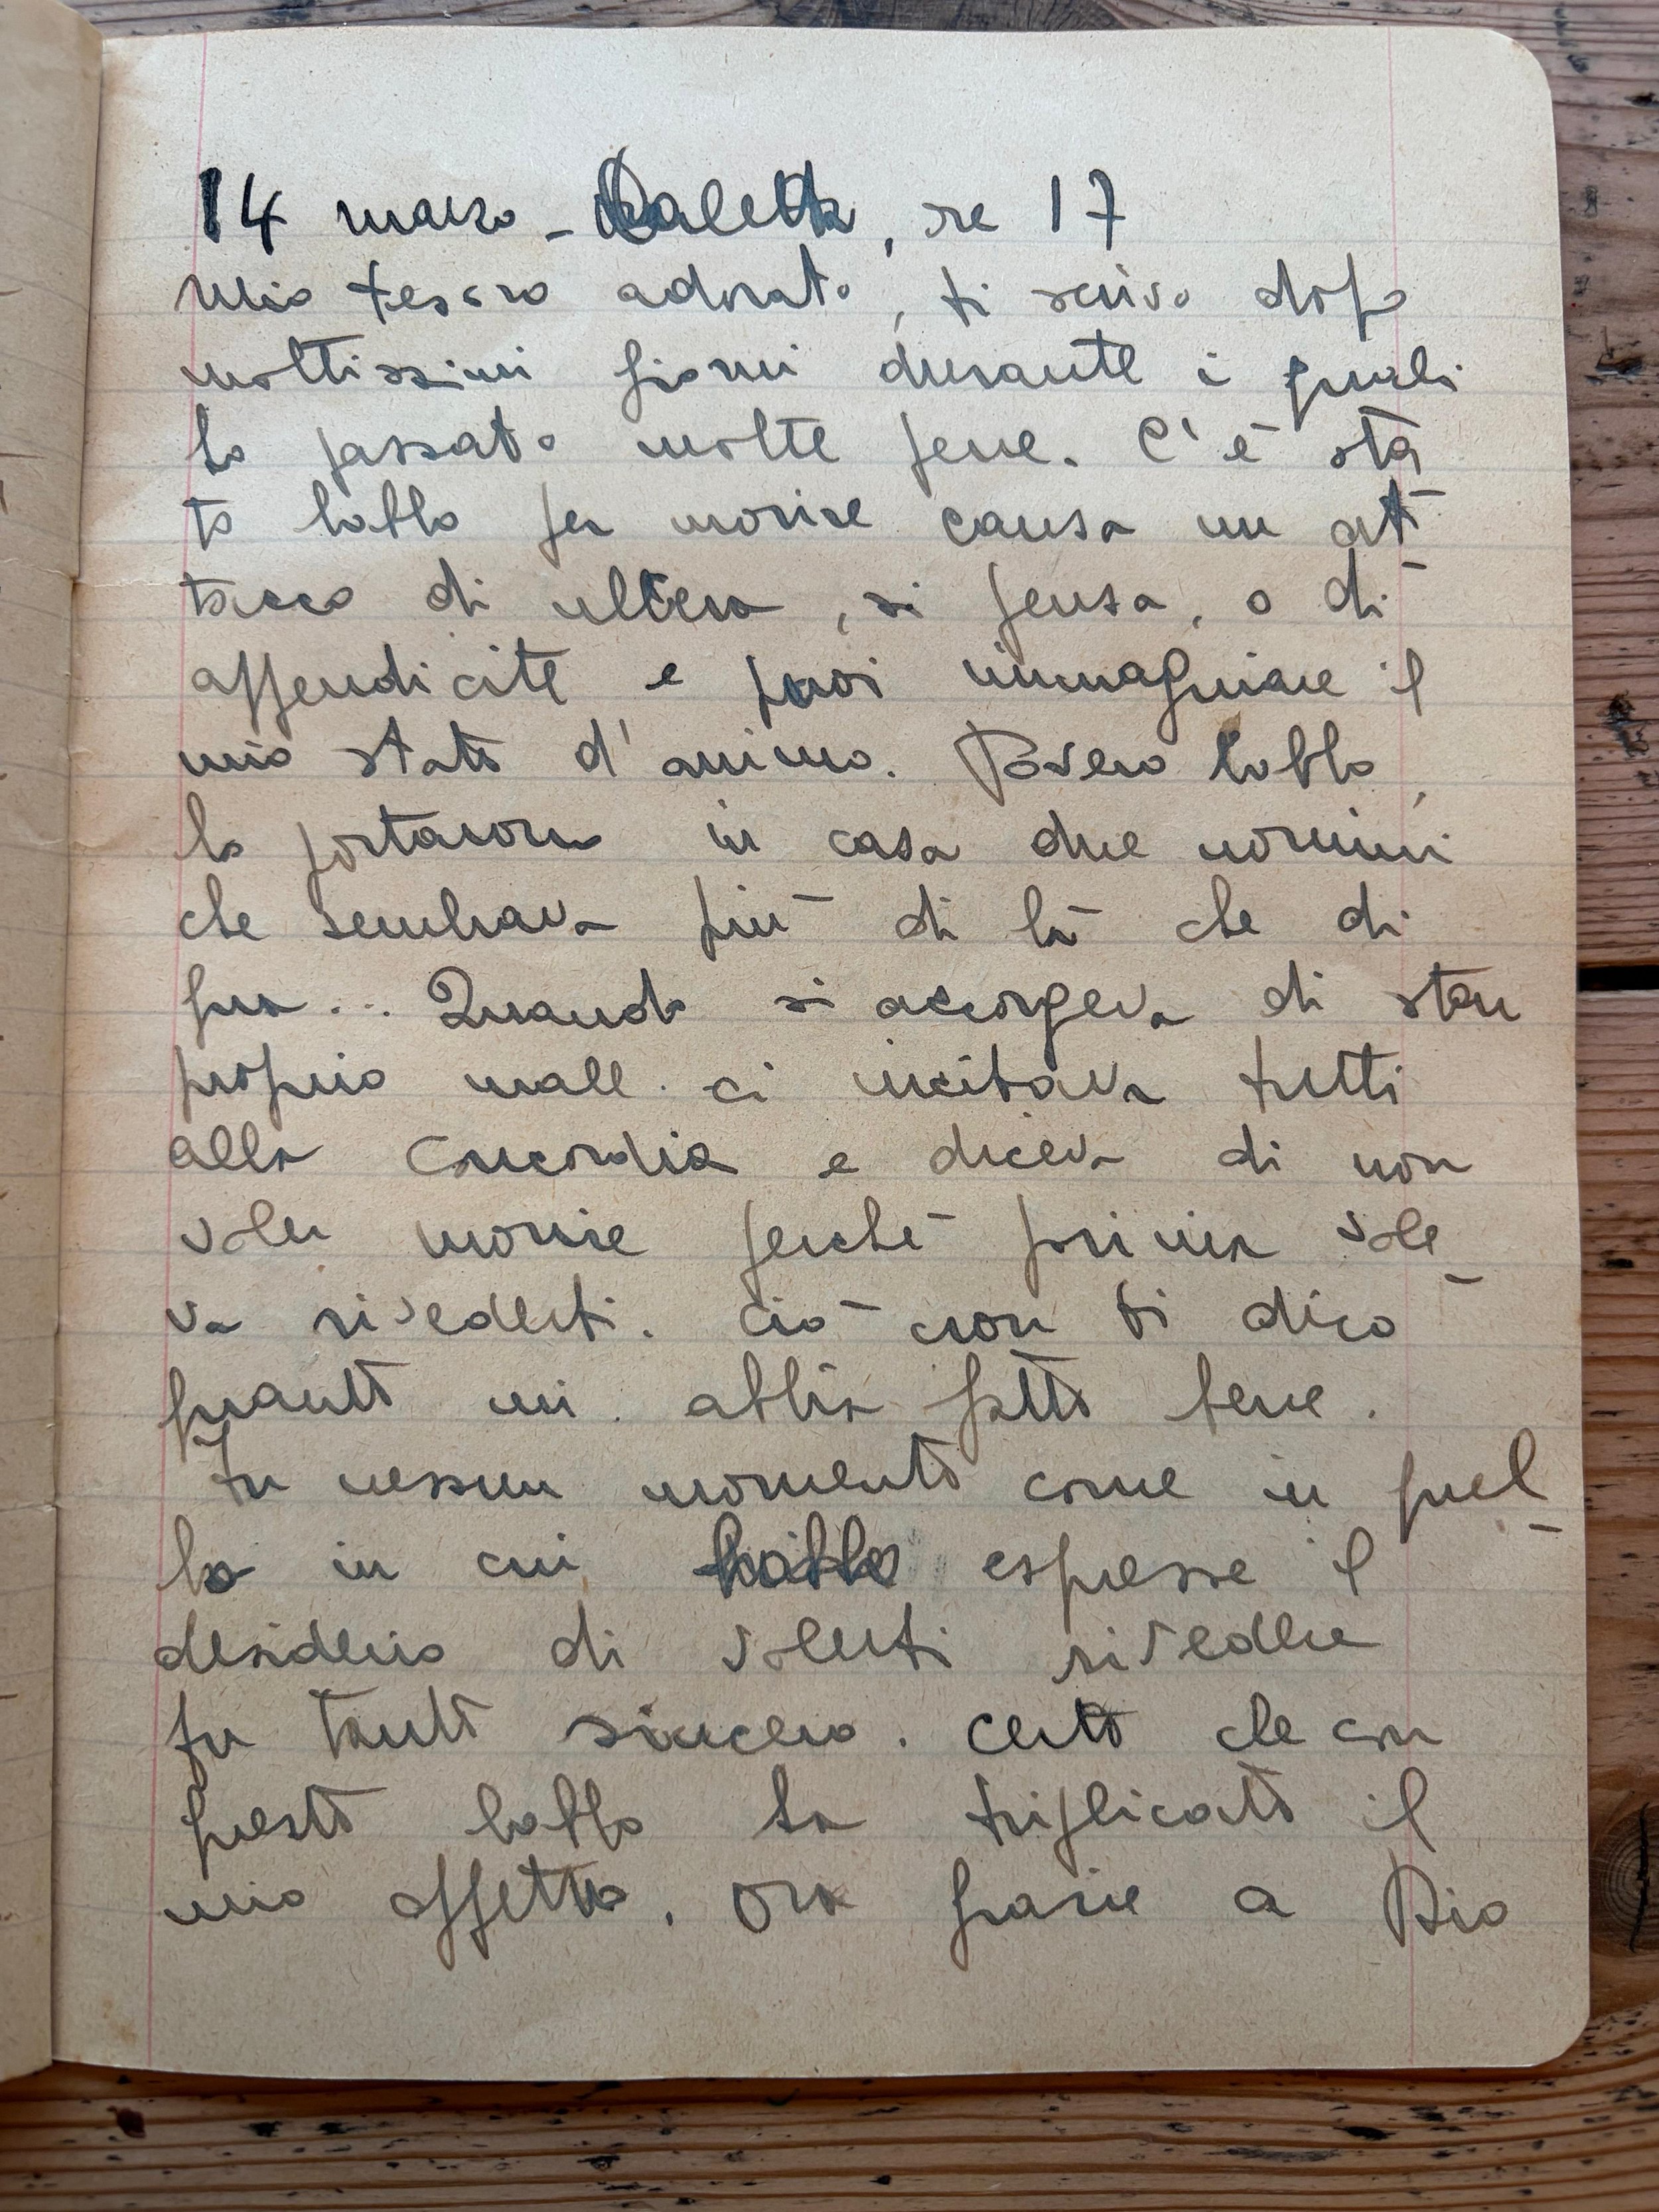 14 marzo - Caletta, re 17
Mio tesoro adorato, ti scrivo dopo
moltissimi giorni durante i quali
ho passato molte pene. C'è sta
to babbo per morire causa un at-
tacco di ulcera, si pensa, o di-
appendicite e puoi immaginare il
mio stato d'animo. Povero babbo,
lo portarono in casa due uomini
che sembrava più di là che di
qua... Quando si accorgeva di star
proprio male ci incitava tutti
alla concordia e diceva di non
voler morire perché prima vole-
va rivederti. Ciò non ti dico
quanto mi abbia fatto bene.
In nessun momento come in quel-
lo in cui babbo espresse il
desiderio di volerti rivedere
fu tanto sincero. Certo che con
questo babbo ha triplicato il
mio affetto. Ora grazie a Dio